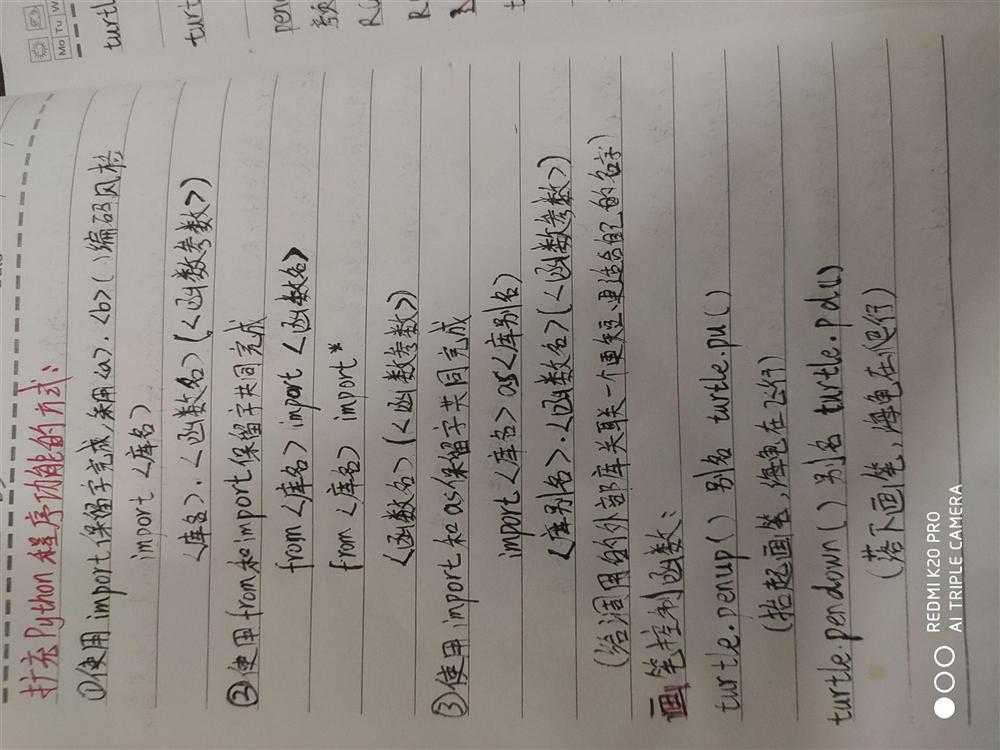 Mo Tu W
turtl
turt
pen
R(
R
t
扩充Python程序功能的方式:
①使用import保留字完成,采用<a>.<b>()编码风格
import <库名>
<库名>.<函数名>(<函数参数>)
②使用from和import保留字共同完成
from <库名> import <函数名>
from <库名> import*
<函数名>(<函数参数>)
③使用import和as保留字共同完成
import <库名> as <库别名>
<库别名>.<函数名>(<函数参数>)
(给调用的外部库关联一个更短、更适合自己的名字)
画笔控制函数:
turtle.penup() 别名 turtle.pu()
(抬起画笔,海龟在飞行)
turtle.pendown() 别名 turtle.pd()
(落下画笔,海龟在爬行)
REDMI K20 PRO
AI TRIPLE CAMERA